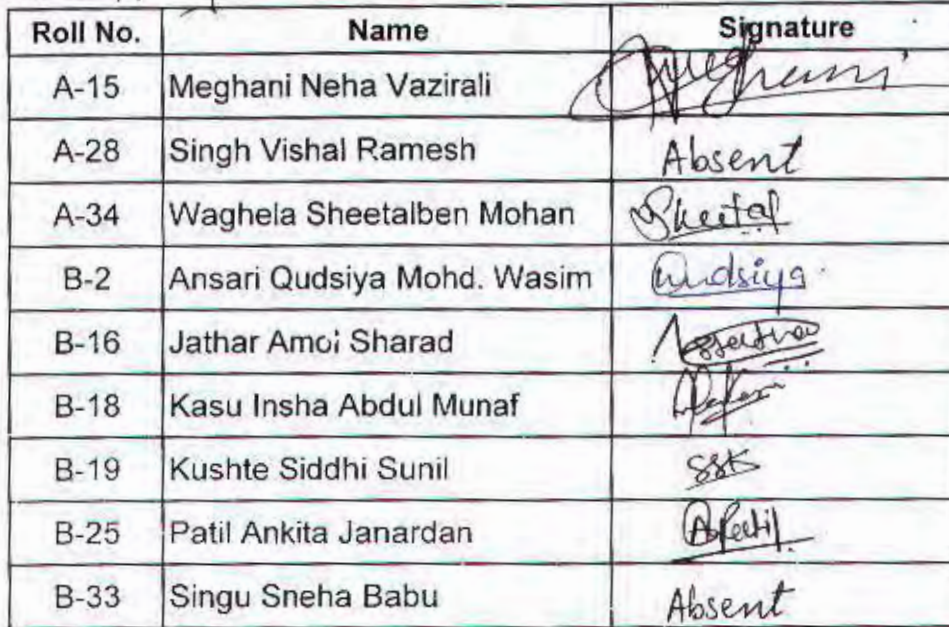 Roll No. Name Signature
A-15 Meghani Neha Vazirali Meghani
A-28 Singh Vishal Ramesh Absent
A-34 Waghela Sheetalben Mohan Sheetal
B-2 Ansari Qudsiya Mohd. Wasim Qudsiya
B-16 Jathar Amol Sharad
B-18 Kasu Insha Abdul Munaf
B-19 Kushte Siddhi Sunil SSK
B-25 Patil Ankita Janardan APatil
B-33 Singu Sneha Babu Absent